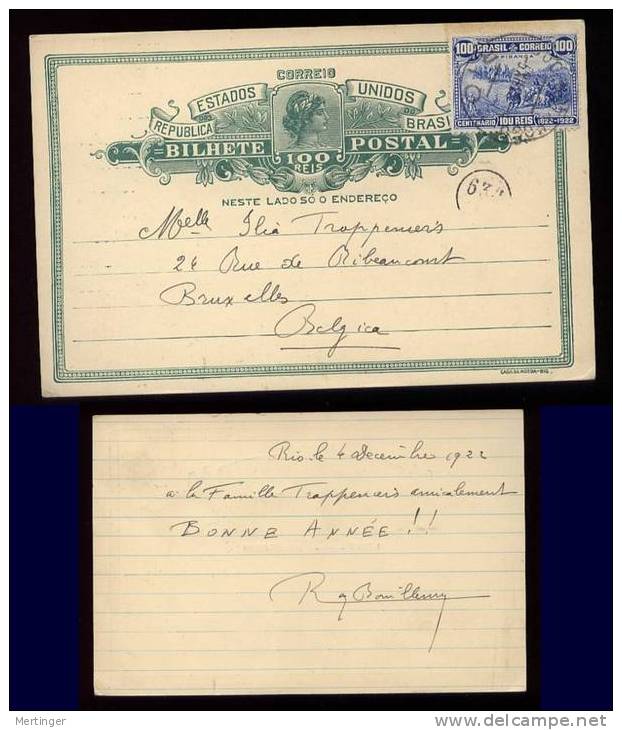 CORREIO
ESTADOS UNIDOS
REPUBLICA DOS DO BRASIL
BILHETE 100 REIS POSTAL
NESTE LADO SÓ O ENDEREÇO
100 BRASIL CORREIO 100
YPIRANGA
CENTENARIO 100 REIS 1822-1922
Melle Ilia Trappeniers
24 Rue de Ribeaucourt
Bruxelles
Belgica
CASA DA MOEDA-RIO
Rio le 4 Decembre 1922
a la Famille Trappeniers amicalement
BONNE ANNÉE !!
Mertinger
www.delcampe.net